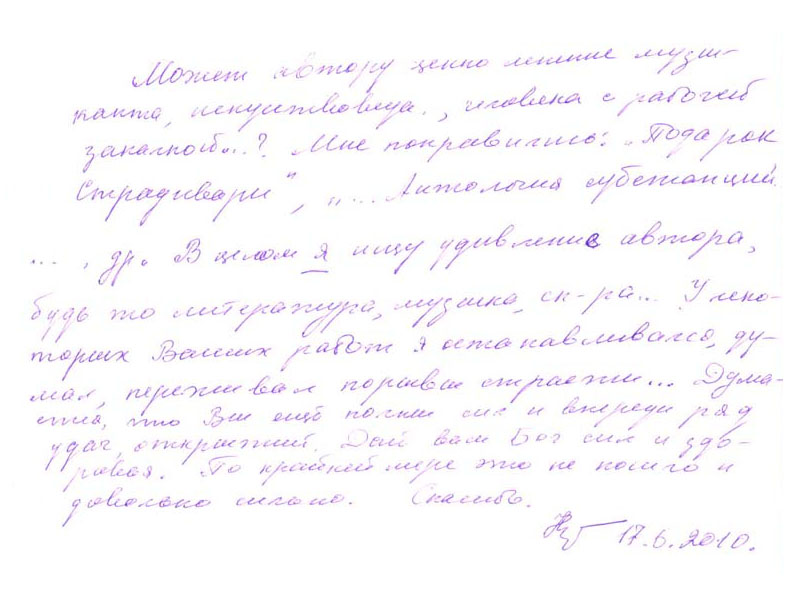 Может автору ценно мнение музы-
канта, искусствоведа., человека с рабочей
закалкой...? Мне понравились: „Подарок
Страдивари", „... Антология субстанций
..., др. В целом я ищу удивление автора,
будь то литература, музыка, ск-ра... У неко-
торых Ваших работ я останавливался, ду-
мал, переживал порывы страсти... Дума-
ется, что Вы ещё полны сил и впереди ряд
удач, открытий. Дай вам Бог сил и здо-
ровья. По крайней мере это не пошло и
довольно сильно. Спасибо.
17.6.2010.